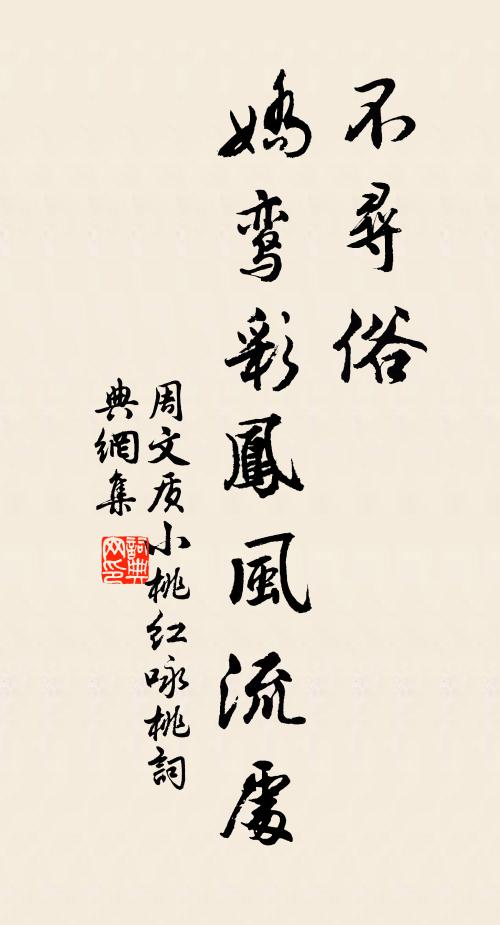 不尋俗
嬌鸾彩鳳風流處
周文质小桃红咏桃詞
典網集
詞典
网印